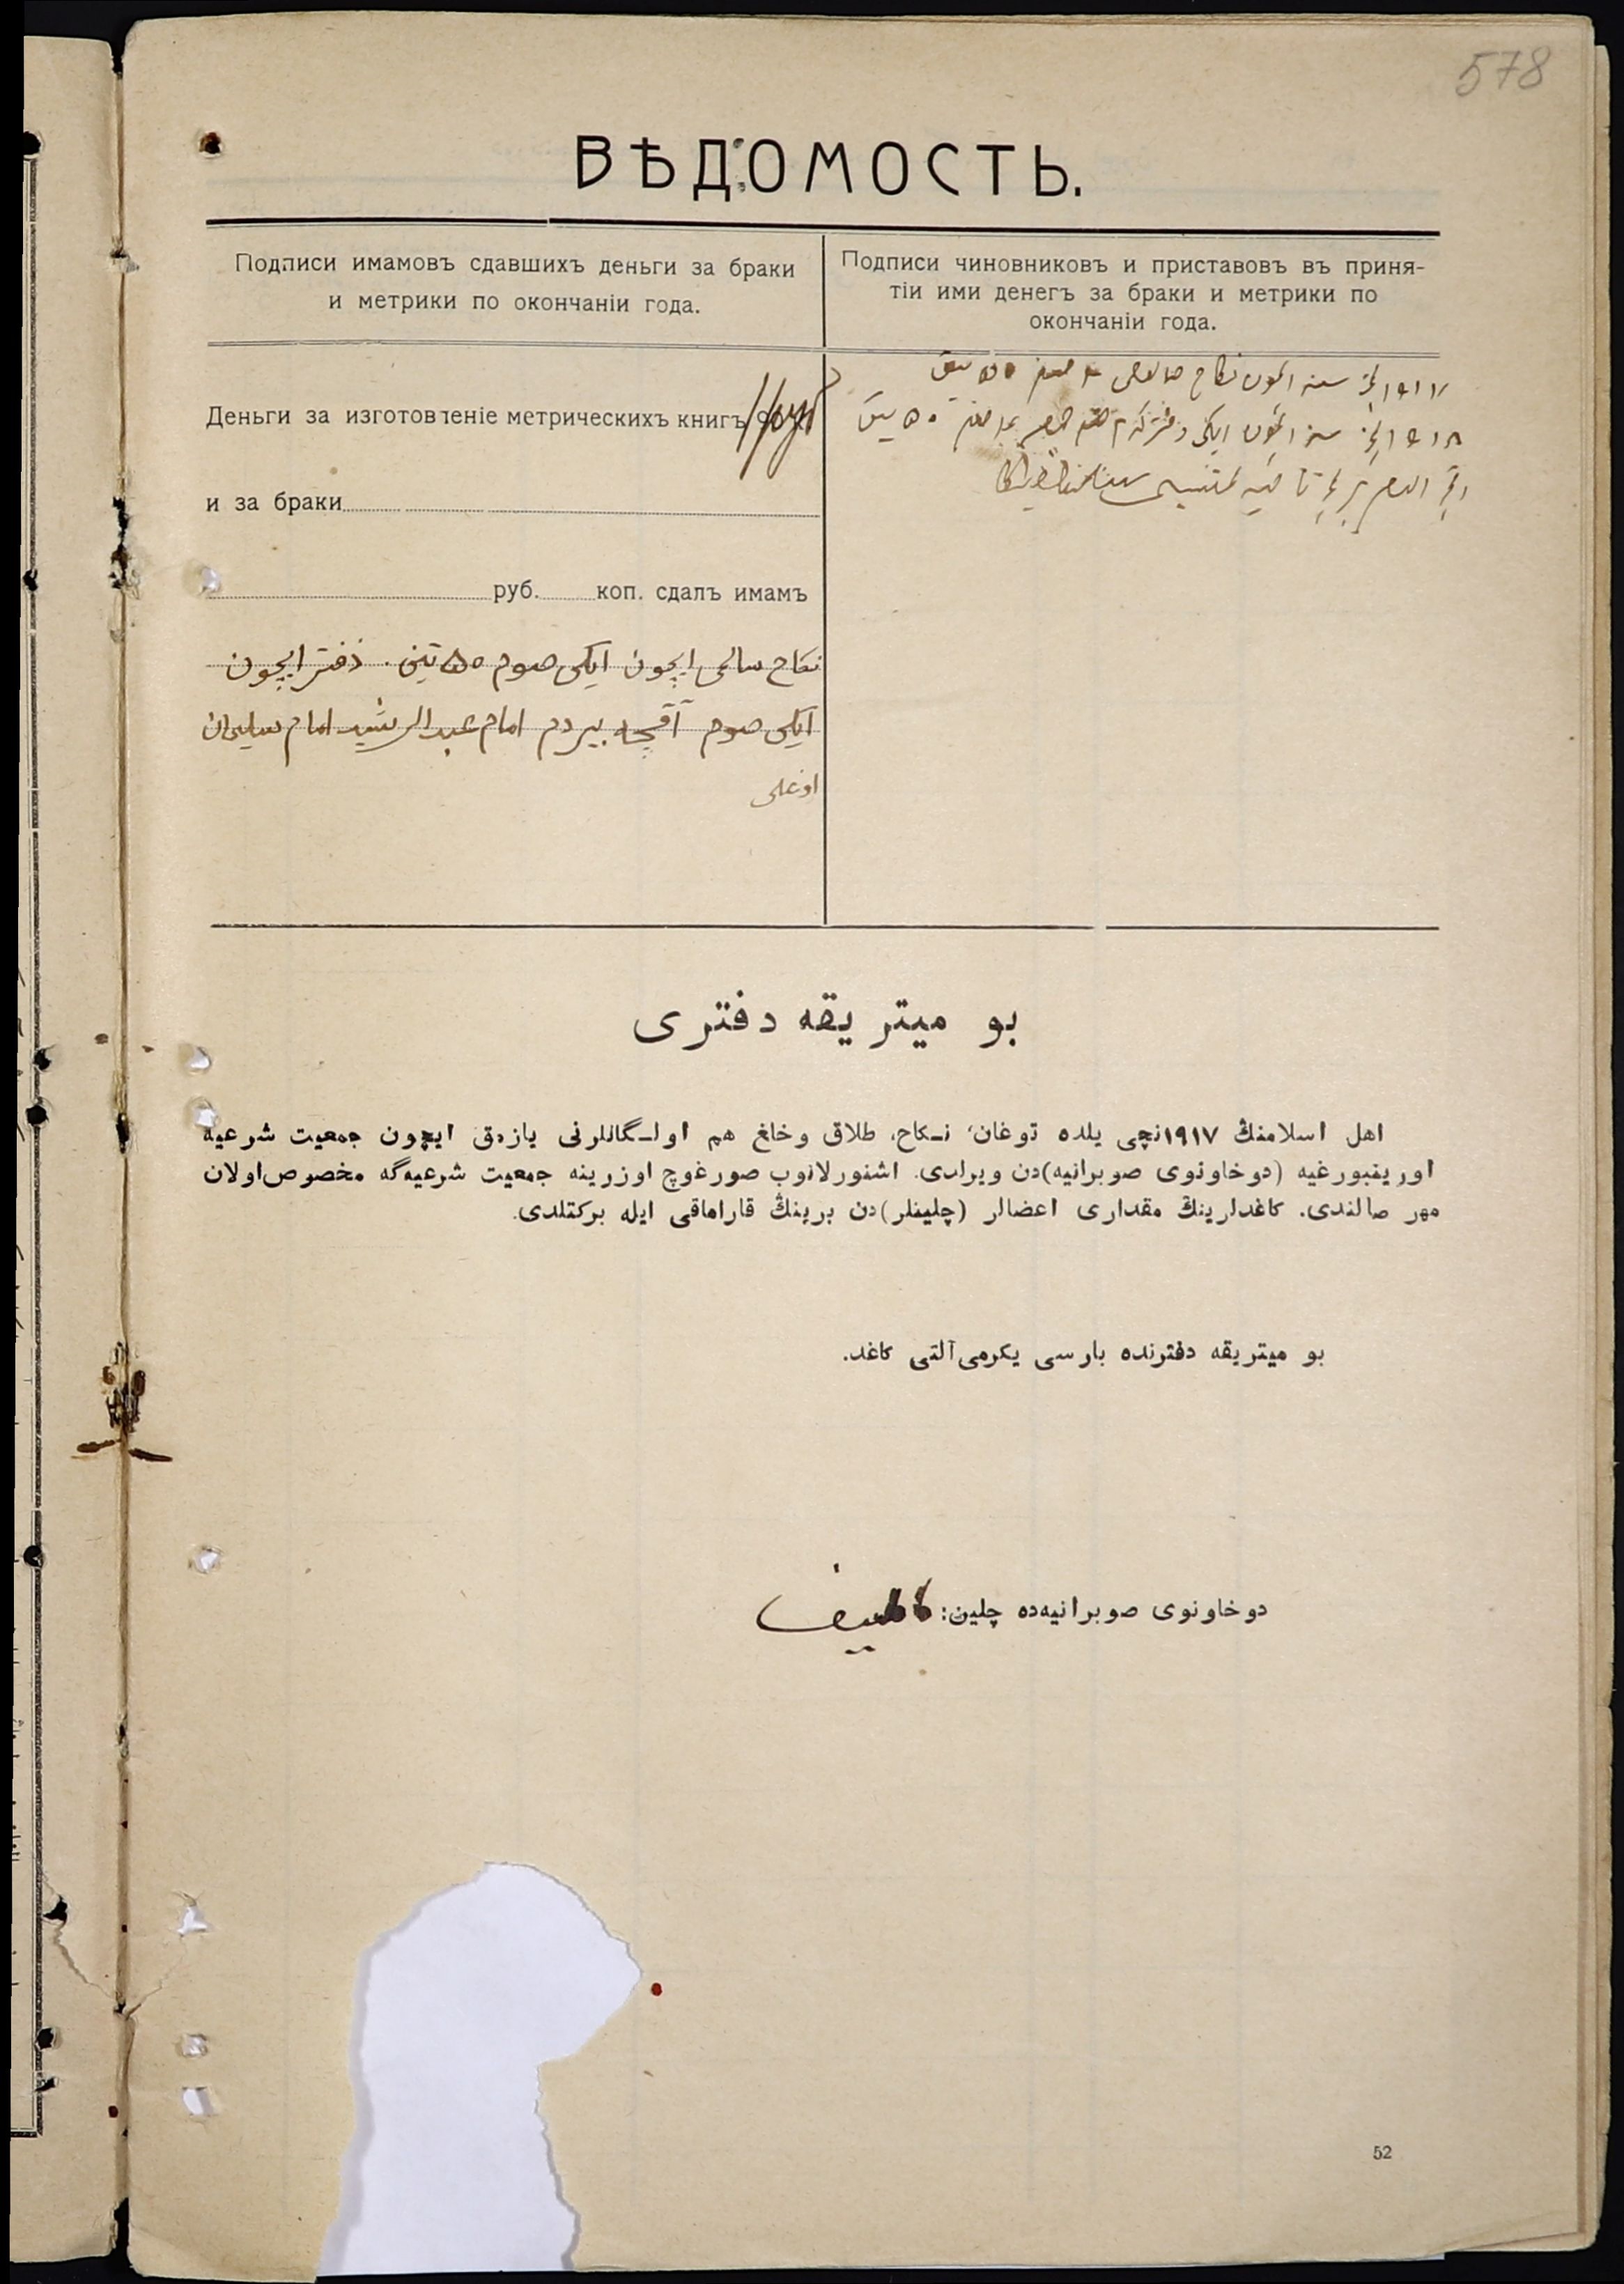 578
ВѢДОМОСТЬ.
Подписи имамовъ сдавшихъ деньги за браки
и метрики по окончаніи года.
Подписи чиновниковъ и приставовъ въ приня-
тіи ими денегъ за браки и метрики по
окончаніи года.
Деньги за изготовленіе метрическихъ книгъ
и за браки
руб. коп. сдалъ имамъ
نكاح سالمى ايچون ايكى صوم ۵۰ تين . دفتر ايچون
ايكى صوم آقچه بيردم امام عبد الرشيد امام سليمان
اوغلى
۱۹۱۷ نچى سنه ايچون نكاح
۱۹۱۸ نچى سنه ايچون ايكى دفتر
بو ميتريقه دفترى
اهل اسلامنڭ ۱۹۱۷نچى يلده توغان، نكاح، طلاق وخلغ هم اولگانلرنى يازمق ايچون جمعيت شرعيه
اورينبورغيه (دوخاونوى صوبرانيه)دن ويرلدى. اشنورلانوب صورغوچ اوزرينه جمعيت شرعيه‌گه مخصوص اولان
مهر صالندى. كاغدلارينڭ مقدارى اعضالر (چلينلر)دن برينڭ قاراماقى ايله بركتلدى.
بو ميتريقه دفترنده بارسى يكرمى آلتى كاغد.
دوخاونوى صوبرانيه‌ده چلين:
52